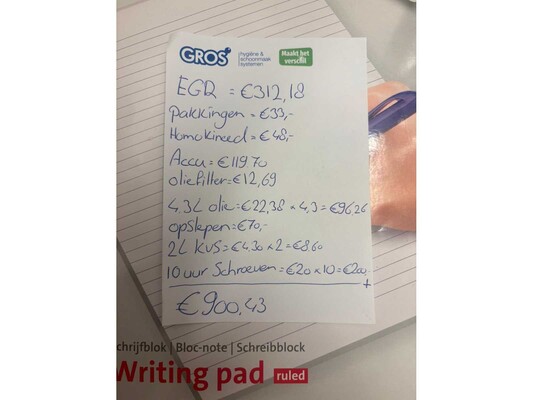 GROS
hygiëne &
schoonmaak
systemen
Maakt het
verschil
EGR = €312,18
Pakkingen = €33,-
Homokineed = €48,-
Accu = €119.70
oliefilter = €12,69
4,3L olie = €22,38 x 4,3 = €96,26
opslepen = €70,-
2L KVS = €4.30 x 2 = €8,60
10 uur Schroeven = €20 x 10 = €200
+
€900,43
chrijfblok | Bloc-note | Schreibblock
Writing pad ruled